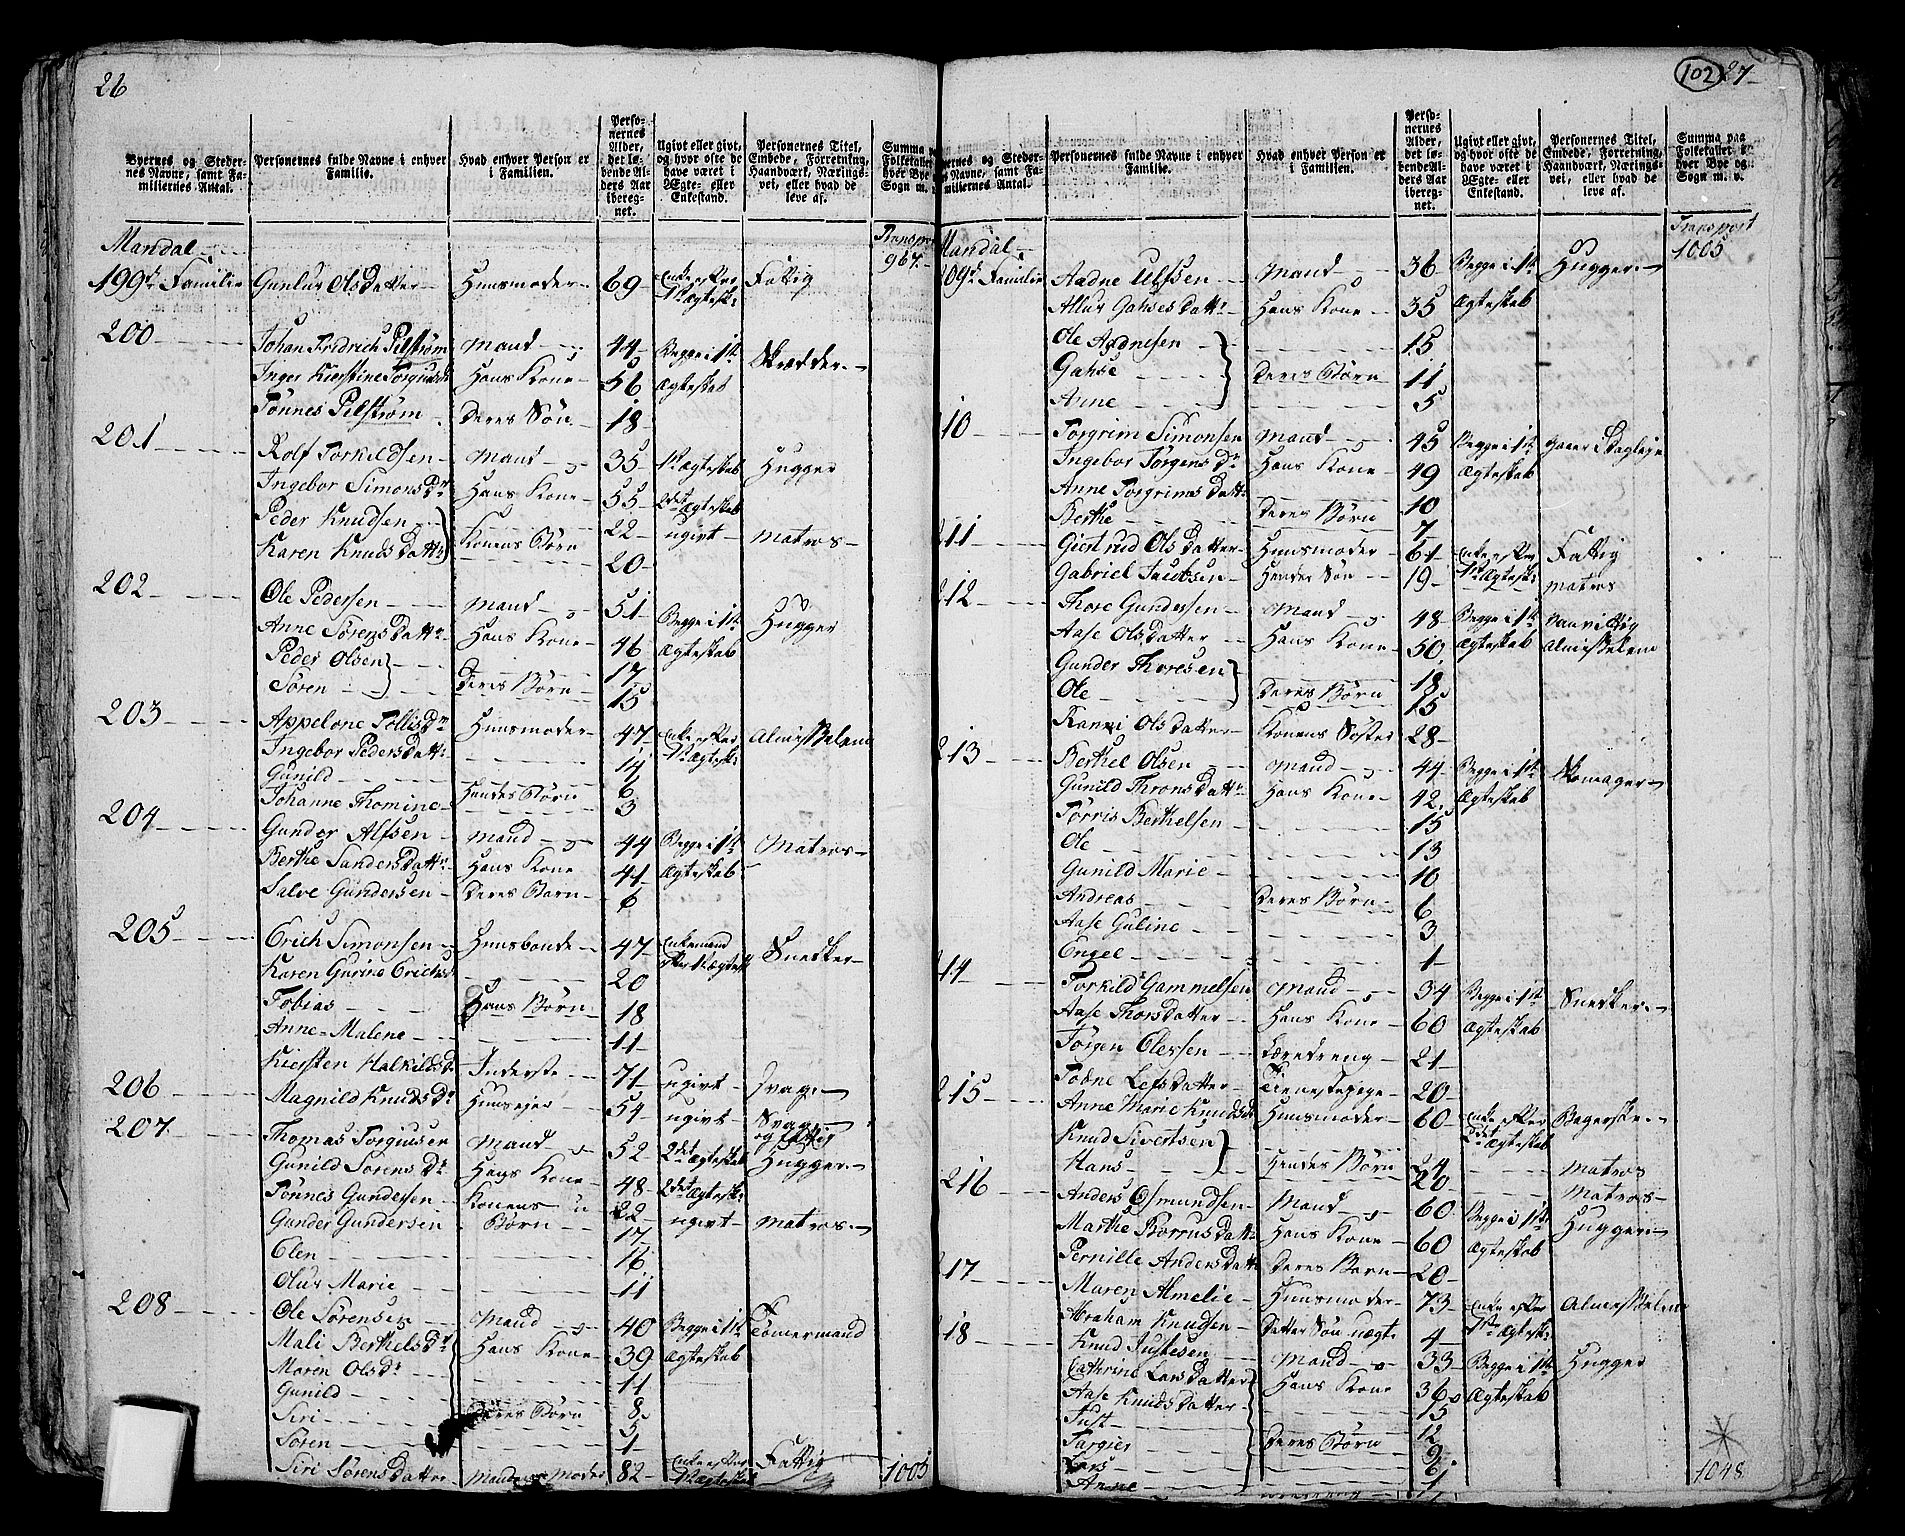 26
Byernes og Steder-
nes Navne, samt Fa-
miliernes Antal.
Personernes fulde Navne i enhver
Familie.
Hvad enhver Person er
i Familien.
Perso-
nernes
Alder,
det lø-
bende Al-
ders Aar
ibereg-
net.
Ugivt eller givt,
og hvor ofte de
have været i
Ægte- eller
Enkestand.
Personernes Titel,
Embede, Forretning,
Haandværk, Nærings-
vei, eller hvad de
leve af.
Summa
Folketallet
hver Bye
Sogn m. v.
Mandal
Transport 967
199de Familie Gunlur Olsdatter Huusmoder 69 Enke efter 1te Ægtesk: Fattig
200 Johan Fredrich Pilstrøm Mand 44 Begge i 1te Skrædder
Inger Kierstine Torgiusd: Hans Kone 56 Ægteskab
Tönnes Pilstrøm Deres Søn 18
201 Rolf Torkildsen Mand 35 1te Ægteskab Hugger
Ingebor Simonsdr Hans Kone 55 2det Ægteskab
Peder Knudsen Konens Børn 22 ugivt Matros
Karen Knudsdatter 20
202 Ole Pedersen Mand 51 Begge i 1te Hugger
Anne Sörensdatter Hans Kone 46 Ægteskab
Peder Olsen 17
Sören Deres Børn 15
203 Appelone Tollisdr Huusmoder 47 Enke efter 1te Ægtesk: Almisselem
Ingebor Pedersdatter 14
Gunild 6
Johanne Thomine Hendes Børn 3
204 Gunder Alfsen Mand 44 Begge i 1te Matros
Berthe Sandersdatter Hans Kone 41 Ægteskab
Salve Gundersen Deres Barn 6
205 Erich Simonsen Huusbonde 47 Enkemand efter 1te Ægtesk Snedker
Karen Gurine Erichsd 20
Tobias Hans Børn 18
Anne Malene 11
Kiersten Halkildsd Inderste 71 ugivt Svag
206 Magnild Knudsdr Huusejer 54 ugivt Svag og fattig
207 Thomas Torgiusen Mand 52 2det Ægteskab Hugger
Gunild Sorensdr Hans Kone 48 2det Ægtesk:
Tönnes Gundersen Konens 22 ugivt Matros
Gunder Gundersen Børn 17
Elen 16
Olur Marie 11
208 Ole Sørensen Mand 40 Begge i 1te Tömermand
Mali Berthelsdr Hans Kone 39 Ægteskab
Maren Olsdr 11
Gunild 8
Siri Deres Børn 5
Sören 1
Siri Sörensdatter Mandens Moder 82 Enke efter 1te Ægteskab Fattig
1005
102 27
ernes og Steder-
es Navne, samt Fa-
miliernes Antal.
Personernes fulde Navne i enhver
Familie.
Hvad enhver Person er
i Familien.
Perso-
nernes
Alder,
det lø-
bende Al-
ders Aar
iberegn-
net.
Ugivt eller givt,
og hvor ofte de
have været i
Ægte- eller
Enkestand.
Personernes Titel,
Embede, Forretning,
Haandværk, Nærings-
vei, eller hvad de
leve af.
Summa paa
Folketallet i
hver Bye og
Sogn m. v.
Mandal
Transport 1005
209de Familie Aadne Ulfsen Mand 36 Begge i 1te Hugger
Allur Gahsesdatter Hans Kone 35 Ægteskab
Ole Aadnesen 15
Gahse Deres Børn 11
Anne 5
210 Torgrim Simonsen Mand 45 Begge i 1te gaaer i Dagleje
Ingebor Jörgensdr Hans Kone 49 Ægteskab
Anne Torgrimsdatter 10
Berthe Deres Børn 7
211 Giertrud Olsdatter Huusmoder 61 Enke efter 1te Ægtesk: Fattig
Gabriel Jacobsen Hendes Søn 19 Matros
212 Thore Gundersen Mand 48 Begge i 1te Vanvittig
Aase Olsdatter Hans Kone 50 Ægteskab Almisselem
Gunder Thoresen 18
Ole Deres Børn 15
Ranni Olsdatter Konens Søster 28
213 Berthel Olsen Mand 44 Begge i 1te Skomager
Gunild Thronsdatter Hans Kone 42 Ægteskab
Torris Berthelsen 15
Ole 13
Gunild Marie 10
Andreas Deres Børn 6
Aase Guline 3
Engel 1
214 Torkild Gammelsen Mand 34 Begge i 1te Snedker
Aase Thorsdatter Hans Kone 60 Ægteskab
Jörgen Olessen Læredreng 21
Tobne Lefsdatter Tienestepige 20
215 Anne Marie Knudsd Huusmoder 60 Enke efter 2det Ægteskab Bagerske
Knud Sivertsen 24 Matros
Hans Hendes Børn 20 Matros
216 Anders Osmundsen Mand 60 Begge i 1te Hugger
Marthe Borrusdatter Hans Kone 60 Ægteskab
Pernille Andersdatter Deres Barn 20
217 Maren Amelie Huusmoder 73 Enke efter 1te Ægtesk: Almisselem
Abraham Knudsen Datter Søn uægte 4
218 Knud Justesen Mand 33 Begge i 1te Hugger
Cathrine Larsdatter Hans Kone 36 Ægteskab
Aase Knudsdatter 15
Just 12
Targier Deres Børn 9
Lars 6
Anne 1
1048